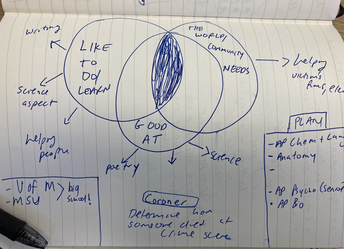 Writing
LIKE
TO
DO/
LEARN
THE
WORLD/
Community
NEEDS
Science
aspect
helping
people
GOOD
AT
poetry
Science
helping
victims
PLAN
- AP Chem + Lang
- Anatomy
-
- AP Psycho (senior
- AP Bo
- U of M > big
- MSU school!
Coroner
Determine how
someone died at
Crime scene